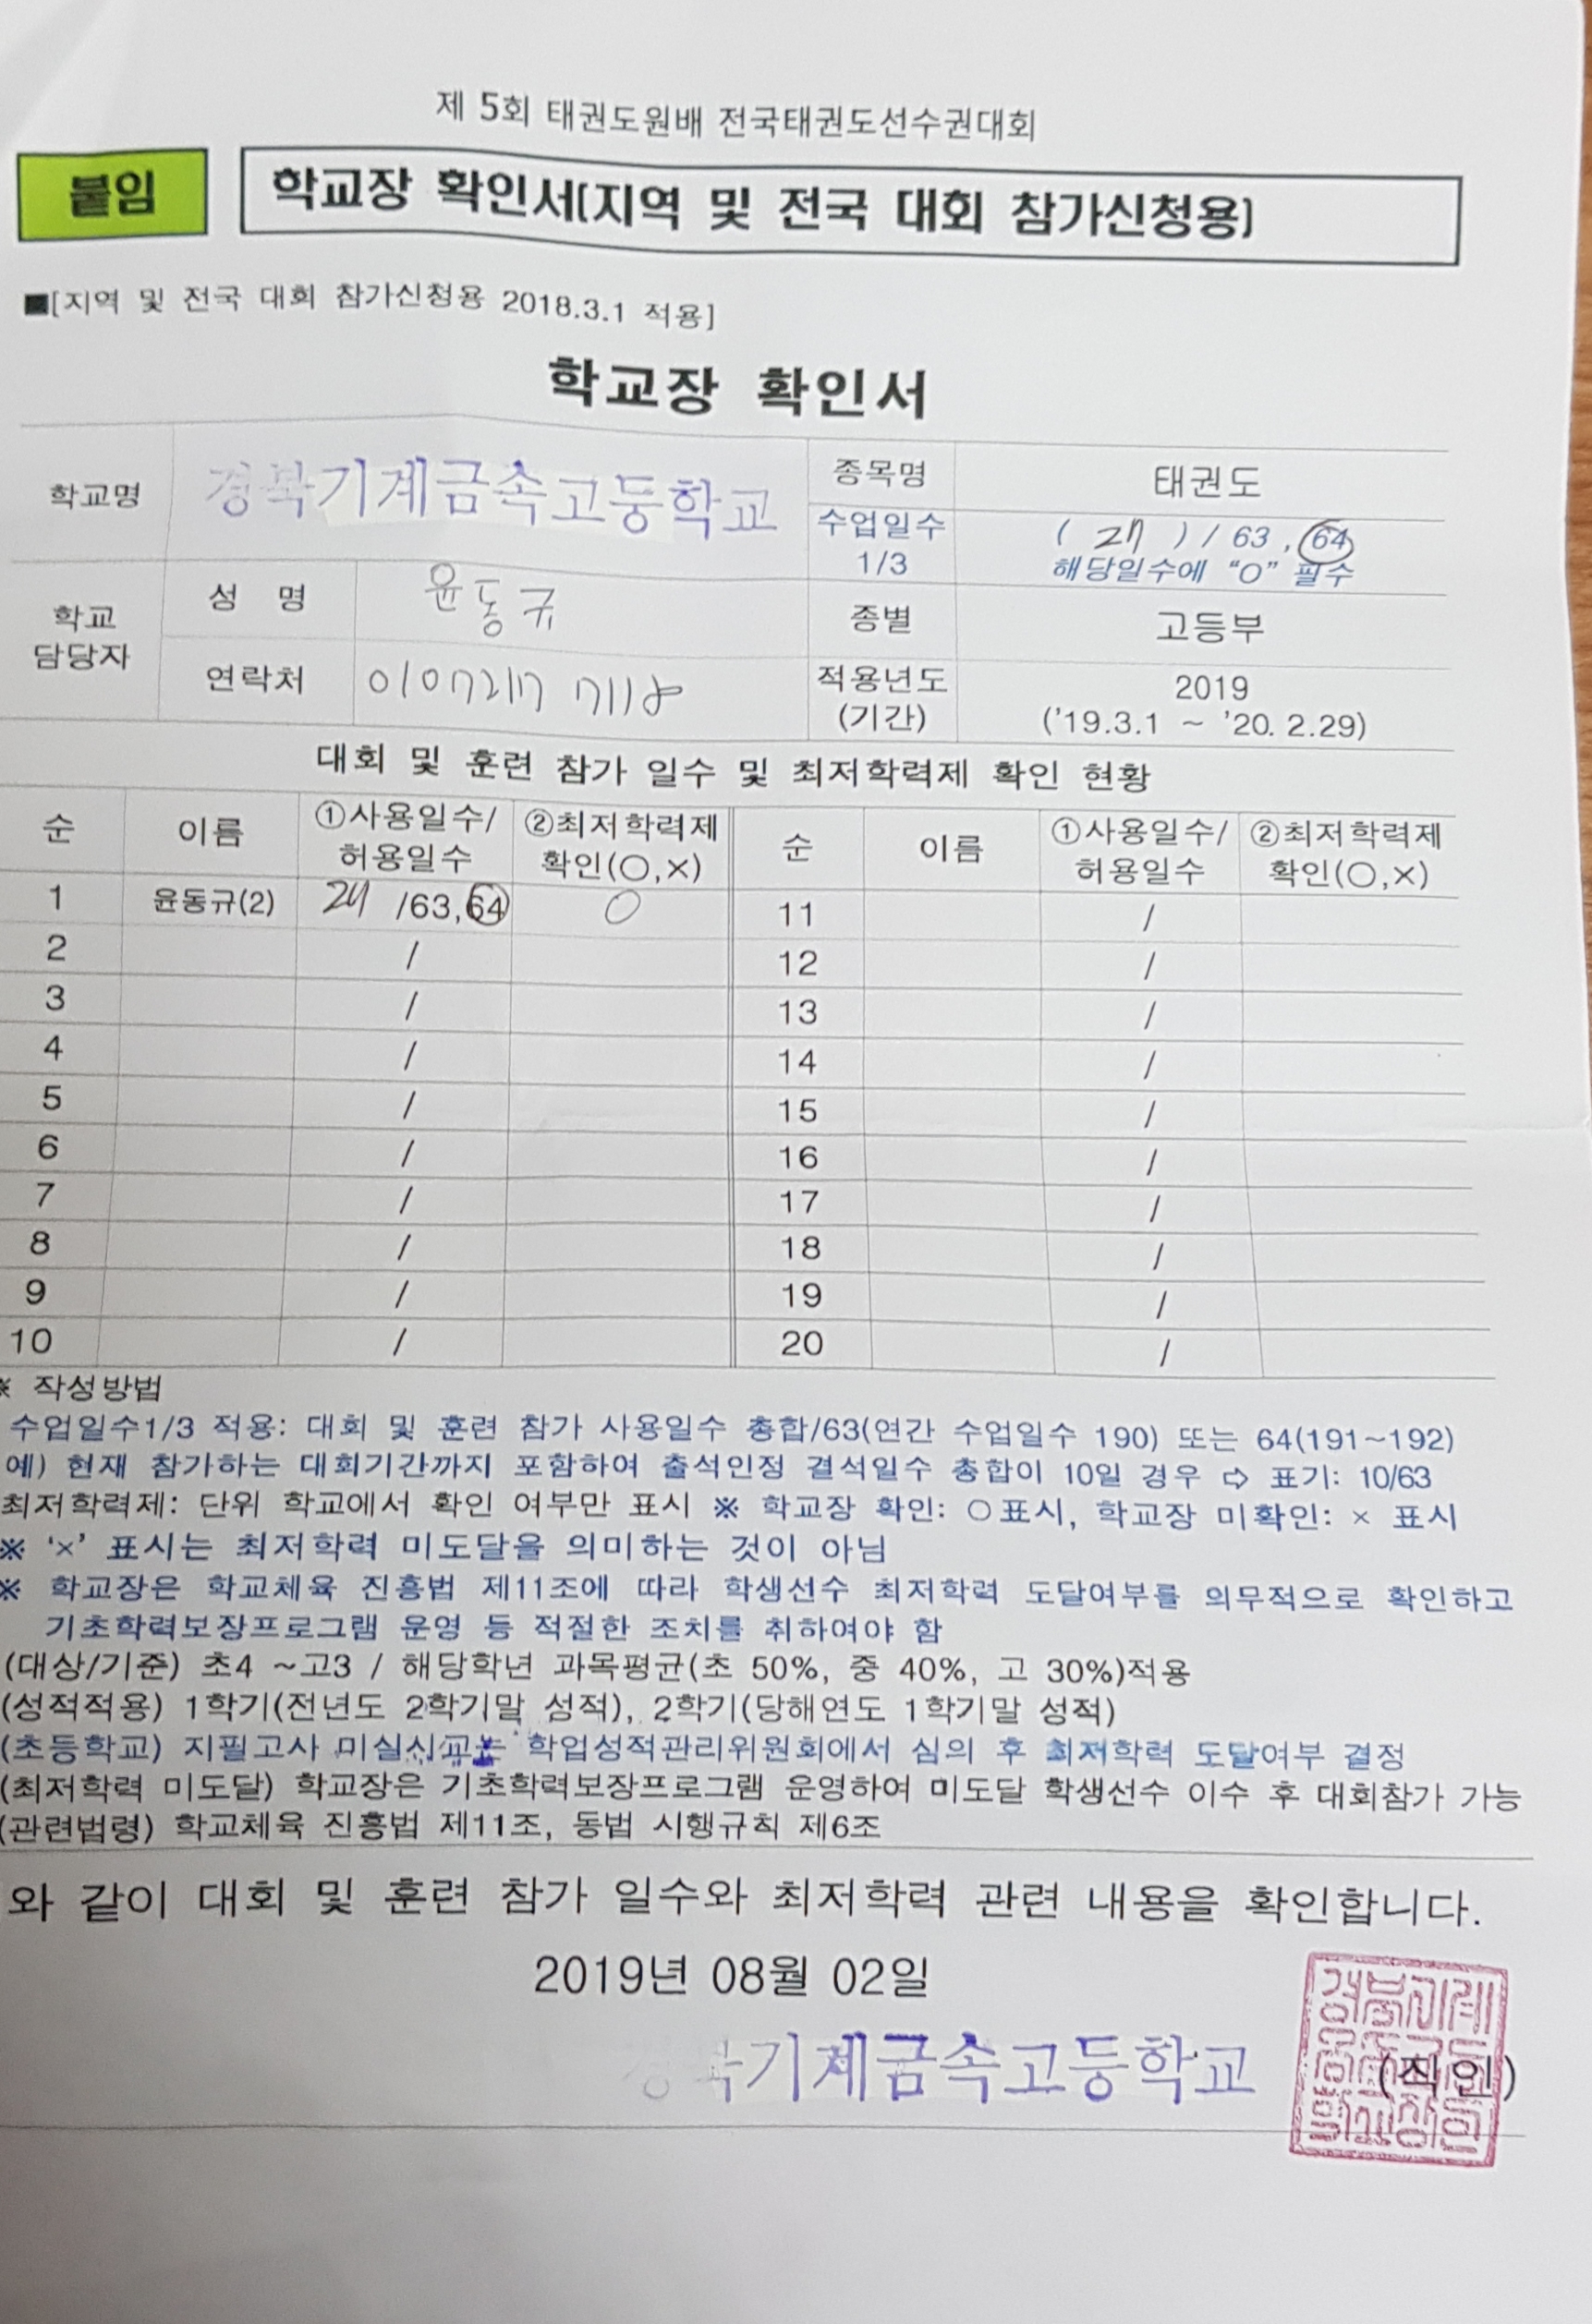 제 5회 태권도원배 전국태권도선수권대회
붙임
학교장 확인서[지역 및 전국 대회 참가신청용]
■[지역 및 전국 대회 참가신청용 2018.3.1 적용]
학교장 확인서
학교명 경북기계금속고등학교 종목명 태권도
수업일수 1/3 ( ) / 63 , 64
해당일수에 “O” 필수
학교 담당자 성 명 윤동규 종별 고등부
연락처 적용년도 (기간) 2019
('19.3.1 ~ '20. 2.29)
대회 및 훈련 참가 일수 및 최저학력제 확인 현황
순 이름 ①사용일수/ 허용일수 ②최저학력제 확인(○,×) 순 이름 ①사용일수/ 허용일수 ②최저학력제 확인(○,×)
1 윤동규(2) /63,64 ○ 11 /
2 / 12 /
3 / 13 /
4 / 14 /
5 / 15 /
6 / 16 /
7 / 17 /
8 / 18 /
9 / 19 /
10 / 20 /
※ 작성방법
수업일수1/3 적용: 대회 및 훈련 참가 사용일수 총합/63(연간 수업일수 190) 또는 64(191~192)
예) 현재 참가하는 대회기간까지 포함하여 출석인정 결석일수 총합이 10일 경우 ⇨ 표기: 10/63
최저학력제: 단위 학교에서 확인 여부만 표시 ※ 학교장 확인: ○표시, 학교장 미확인: × 표시
※ ‘×’ 표시는 최저학력 미도달을 의미하는 것이 아님
※ 학교장은 학교체육 진흥법 제11조에 따라 학생선수 최저학력 도달여부를 의무적으로 확인하고
기초학력보장프로그램 운영 등 적절한 조치를 취하여야 함
(대상/기준) 초4 ~고3 / 해당학년 과목평균(초 50%, 중 40%, 고 30%)적용
(성적적용) 1학기(전년도 2학기말 성적), 2학기(당해연도 1학기말 성적)
(초등학교) 지필고사 미실시교는 학업성적관리위원회에서 심의 후 최저학력 도달여부 결정
(최저학력 미도달) 학교장은 기초학력보장프로그램 운영하여 미도달 학생선수 이수 후 대회참가 가능
(관련법령) 학교체육 진흥법 제11조, 동법 시행규칙 제6조
와 같이 대회 및 훈련 참가 일수와 최저학력 관련 내용을 확인합니다.
2019년 08월 02일
북기계금속고등학교 (직인)